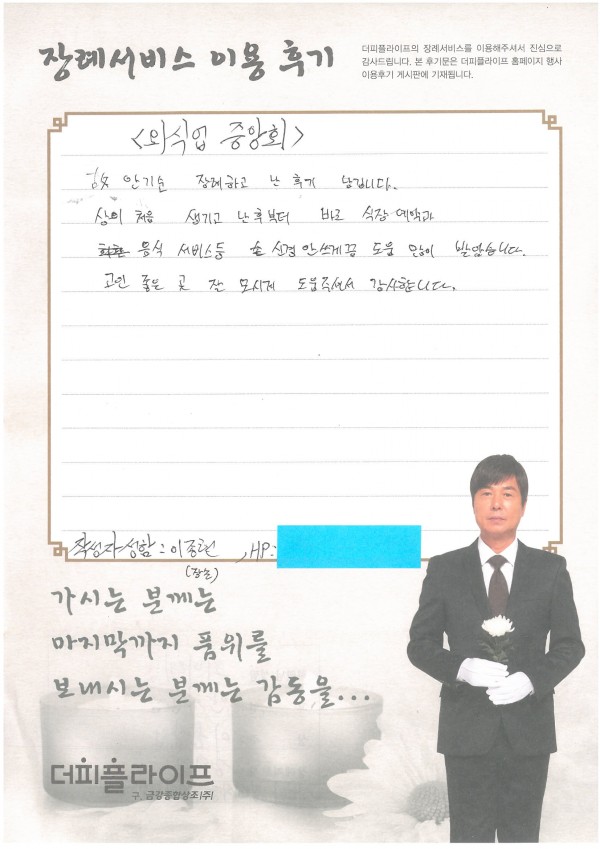 장례서비스 이용 후기
더피플라이프의 장례서비스를 이용해주셔서 진심으로
감사드립니다. 본 후기문은 더피플라이프 홈페이지 행사
이용후기 게시판에 기재됩니다.
<외식업 중앙회>
故 안기순 장례하고 난 후기 남깁니다.
상이 처음 생기고 난후부터 바로 식장 예약과
음식 서비스등 신경 안쓰게끔 도움 많이 받았습니다.
고인 좋은 곳 잘 모시게 도움주셔서 감사합니다.
작성자성함 : 이종현 , HP:
(장손)
가시는 분께는
마지막까지 품위를
보내시는 분께는 감동을...
더피플라이프
구. 금강종합상조(주)